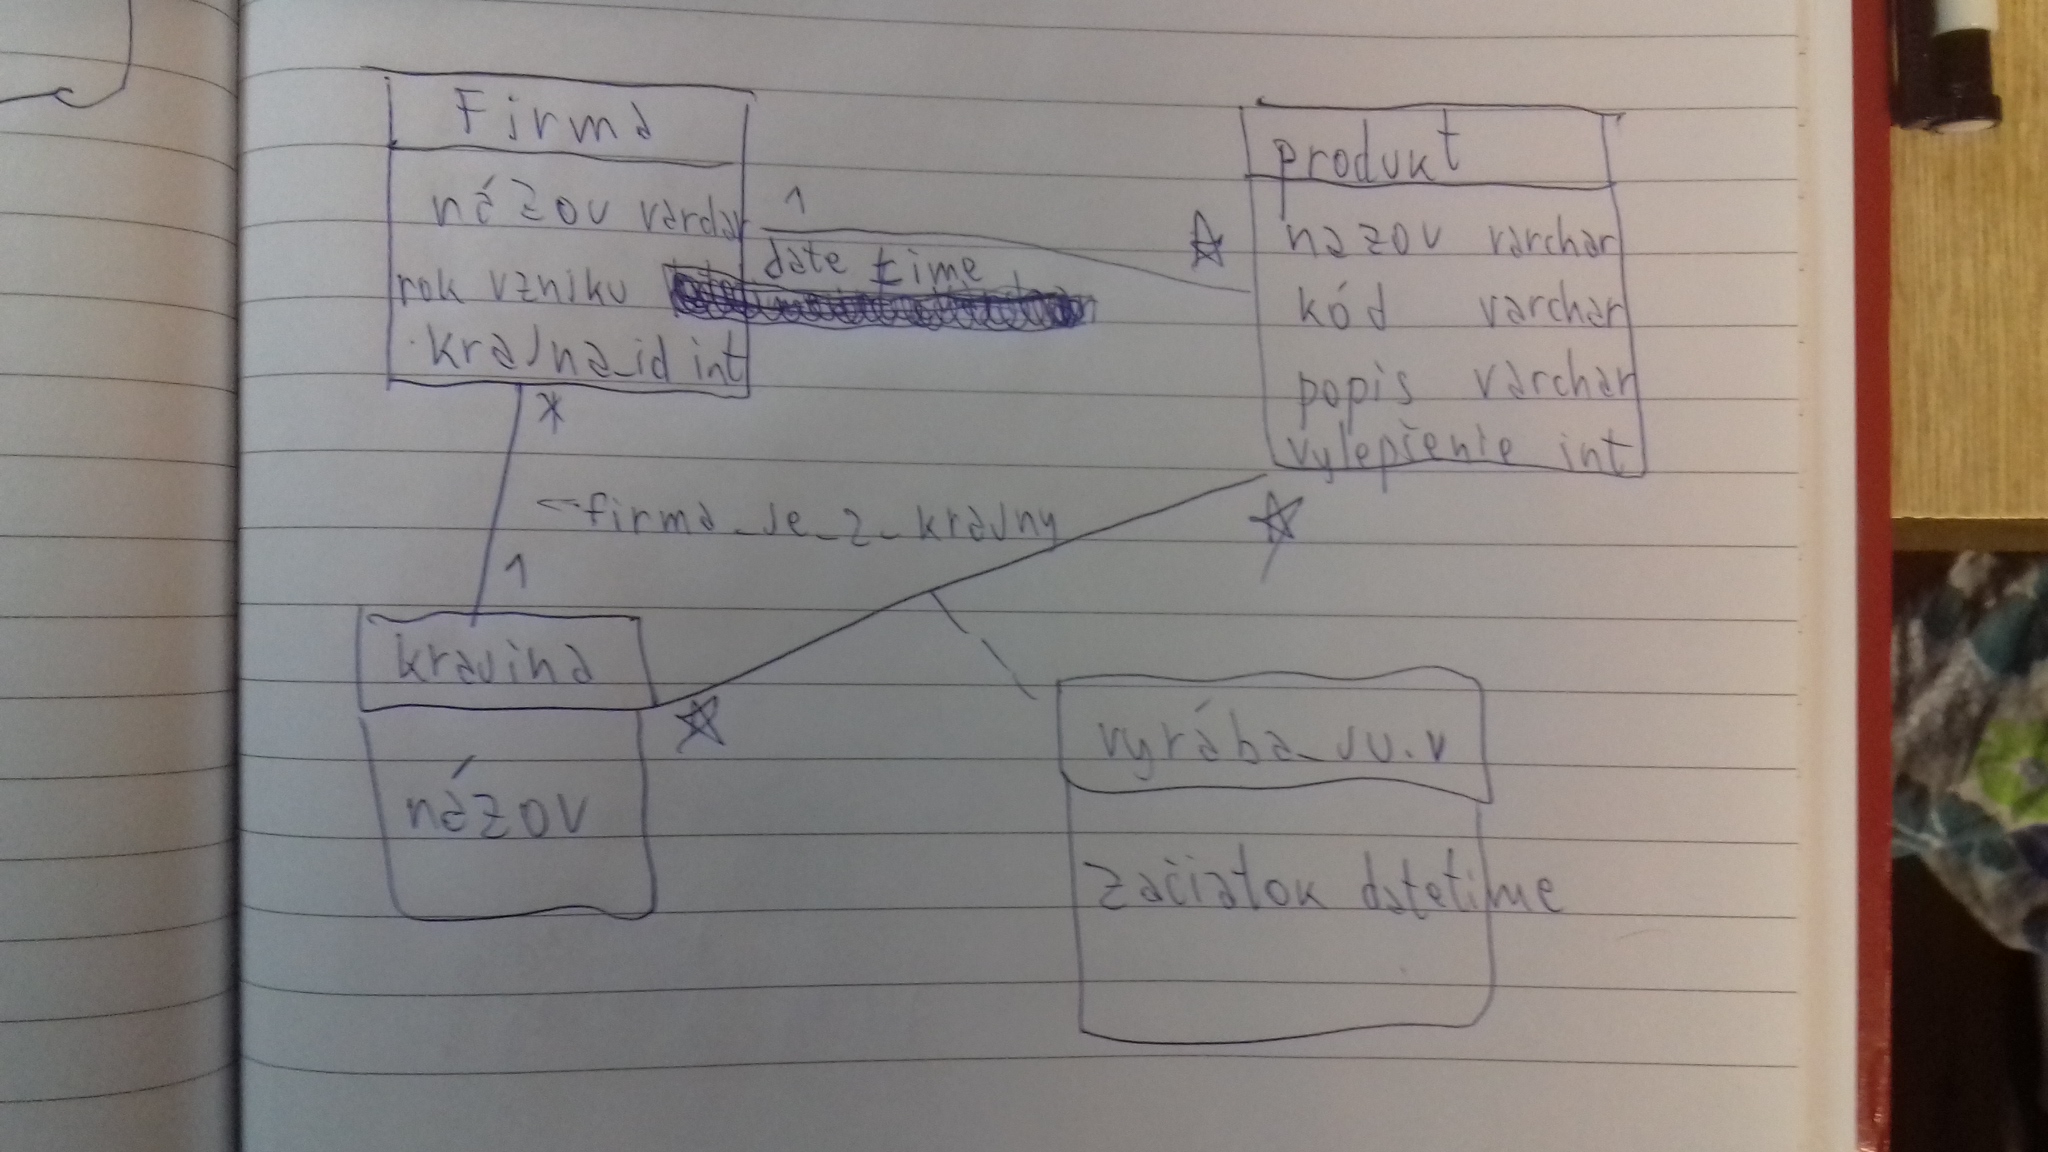 Firma
názov varchar
rok vzniku date time
krajna_id int
1
*
produkt
nazov varchar
kód varchar
popis varchar
vylepšenie int
*
*
<-firma_je_z_krajny
1
krajina
názov
*
vyrába_sa.v
začiatok datetime